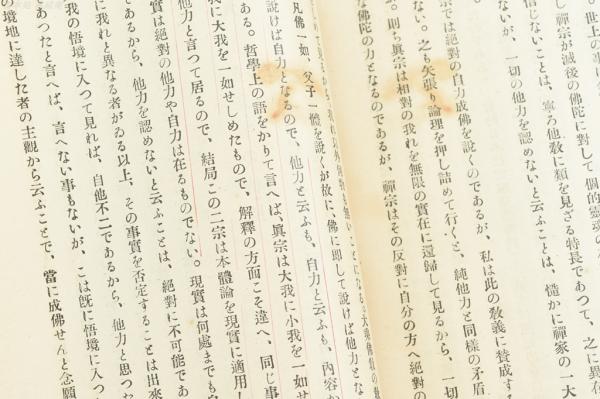 。世上の事は
し禪宗が滅後の佛陀に對して個的靈魂の
信じないことは、寧ろ他教に類を見ざる特長であつて、之に異な
が、一切の他力を認めないと云ふことは、慥かに禪家の一大
宗では絶對の自力成佛を説くのであるが、私は此の教義に賛成する
ない。之も矢張り論理を押し詰めて行くと、純他力と同樣の矛盾
。則ち眞宗は相對の我れを無限の實在に還歸して見るから、一切
な佛陀の力となるのであるが、禪宗はその反對に自分の方へ絶對の
凡佛一如、父子一體を説くが故に、佛に即して説けば他力とな
説けば自力となるので、他力と云ふも、自力と云ふも、内容か
ある。哲學上の語をかりて言へば、眞宗は大我に小我を一如せ
に大我を一如せしめたもので、解釋の方面こそ違へ、同じ事
他力と言つて居るので、結局この二宗は本體論を現實に適用し
實は絶對の他力や自力は在るものでない。現實は何處までも自
であるから、他力を認めないと云ふことは、絶對に不可能であ
に我れと異なる者がゐる以上、その事實を否定することは出來
我の悟境に入つて見れば、自他不二であるから、他力と思つた
であつたと言へば、言へない事もないが、こは既に悟境に入つ
の境地に達した者の主觀から云ふことで、當に成佛せんと念願